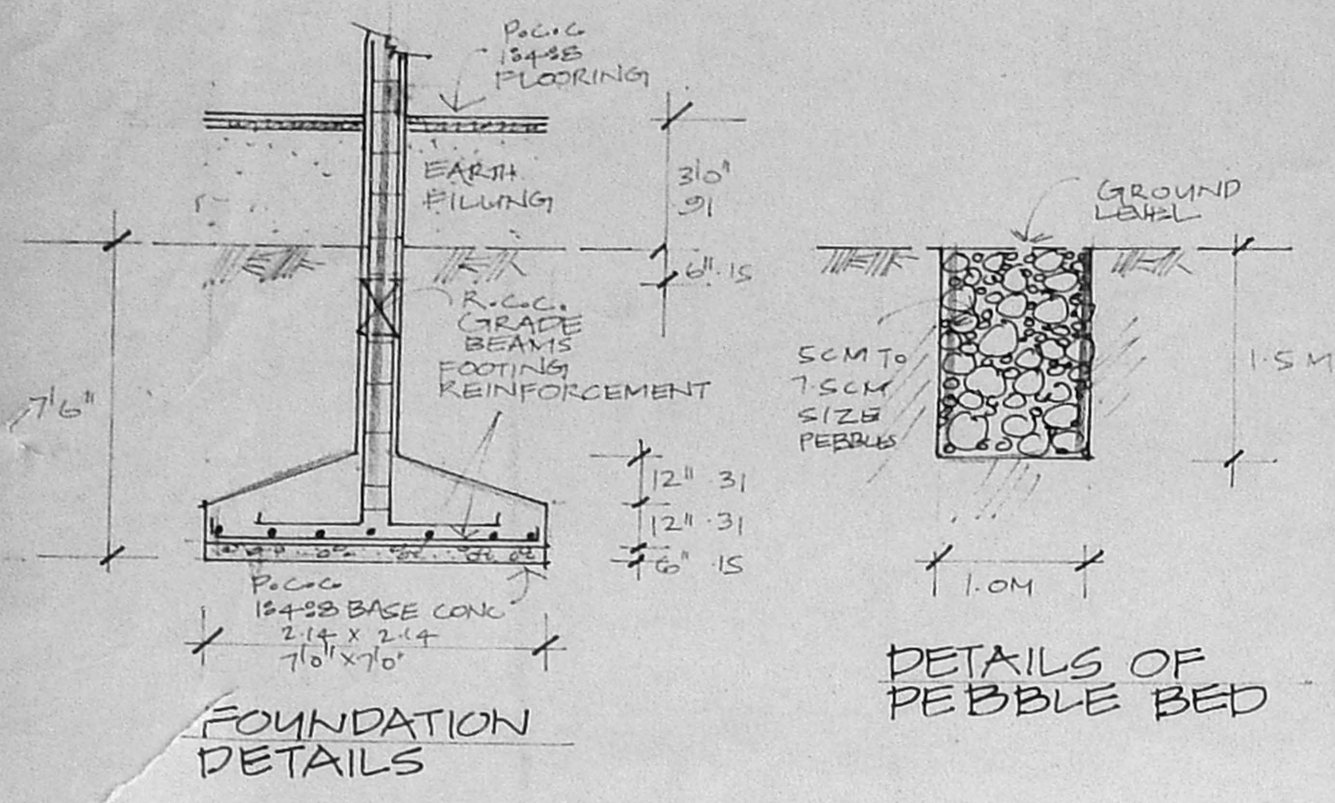 P.C.C
1:4:8
FLOORING
EARTH
FILLING
3'0"
91
6" .15
R.C.C.
GRADE
BEAMS
FOOTING
REINFORCEMENT
7'6"
12" .31
12" .31
6" .15
P.C.C
1:4:8 BASE CONC
2.14 x 2.14
7'0" x 7'0"
FOUNDATION
DETAILS
GROUND
LEVEL
5CM TO
7.5CM
SIZE
PEBBLES
1.5 M
1.0M
DETAILS OF
PEBBLE BED